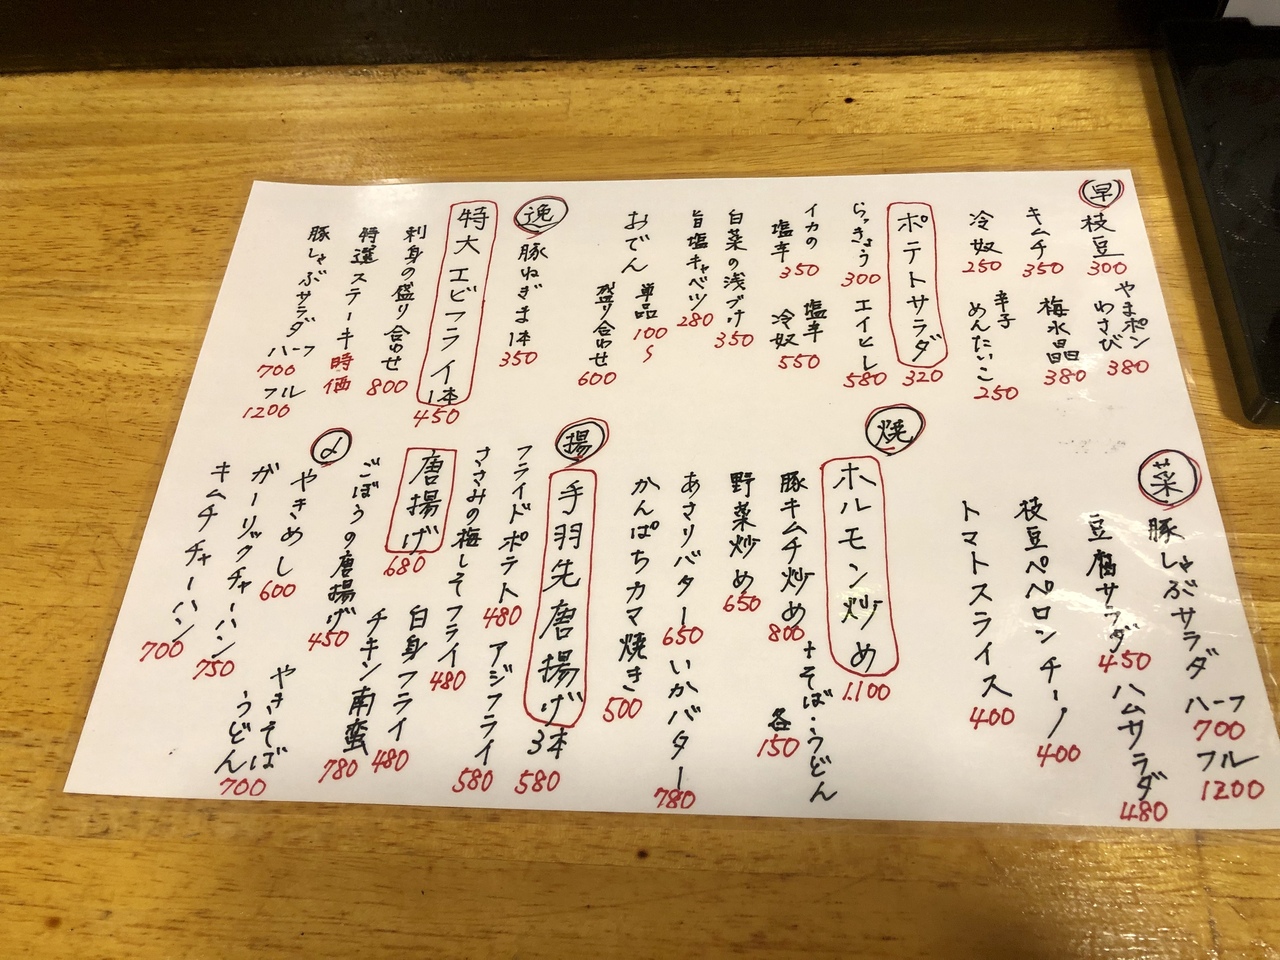 早
枝豆 300
やまポンわさび 380
キムチ 350
梅水晶 380
冷奴 250
辛子めんたいこ 250
ポテトサラダ 320
らっきょう 300
エイヒレ 580
イカの塩辛 350
塩辛冷奴 550
白菜の浅づけ 350
旨塩キャベツ 280
おでん 単品 100〜
盛り合わせ 600
逸
豚ねぎま 1本 350
特大エビフライ 1本 450
刺身の盛り合わせ 800
特選ステーキ 時価
豚しゃぶサラダ ハーフ 700
フル 1200
菜
豚しゃぶサラダ ハーフ 700
フル 1200
豆腐サラダ 450
ハムサラダ 480
枝豆ペペロンチーノ 400
トマトスライス 400
焼
ホルモン炒め 1.100
+そば・うどん 各150
豚キムチ炒め 800
野菜炒め 650
あさりバター 650
いかバター 780
かんぱちカマ焼き 500
揚
手羽先唐揚げ 3本 580
フライドポテト 480
アジフライ 580
ささみの梅しそフライ 480
白身フライ 480
唐揚げ 680
チキン南蛮 780
ごぼうの唐揚げ 450
〆
やきめし 600
やきそば・うどん 700
ガーリックチャーハン 750
キムチチャーハン 700